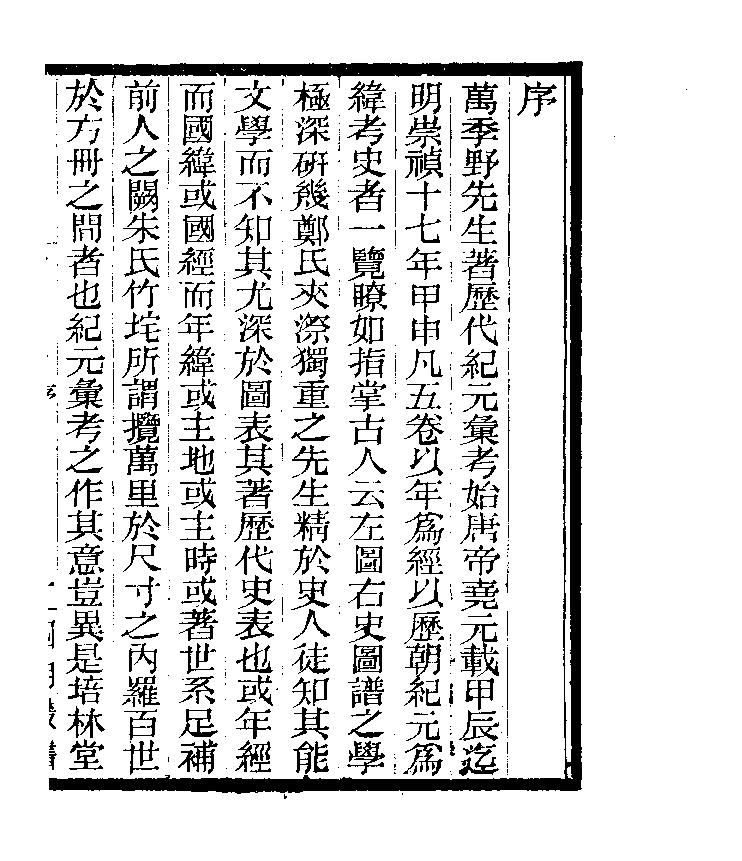 序
萬季野先生著歷代紀元彙考始唐帝堯元載甲辰迄
明崇禎十七年甲申凡五卷以年爲經以歷朝紀元爲
緯考史者一覽瞭如指掌古人云左圖右史圖譜之學
極深研幾鄭氏夾漈獨重之先生精於史人徒知其能
文學而不知其尤深於圖表其著歷代史表也或年經
而國緯或國經而年緯或主地或主時或著世系足補
前人之闕朱氏竹垞所謂攬萬里於尺寸之內羅百世
於方冊之間者也紀元彙考之作其意豈異是培林堂
序